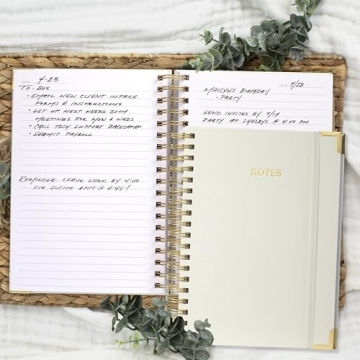 4-23
TO-DOS
• EMAIL NEW CLIENT INTAKE
FORMS & INSTRUCTIONS
• SET UP NEXT WEEKS ZOOM
MEETINGS FOR MON & WEDS
• CALL TECH SUPPORT
• SUBMIT PAYROLL
REMINDER: LEAVE WORK BY 4:00
FOR DOCTOR APPT @ 4:45!
7/23
BIRTHDAY
• PARTY
SEND INVITES BY 7/14
PARTY AT @ 4:00 PM
NOTES